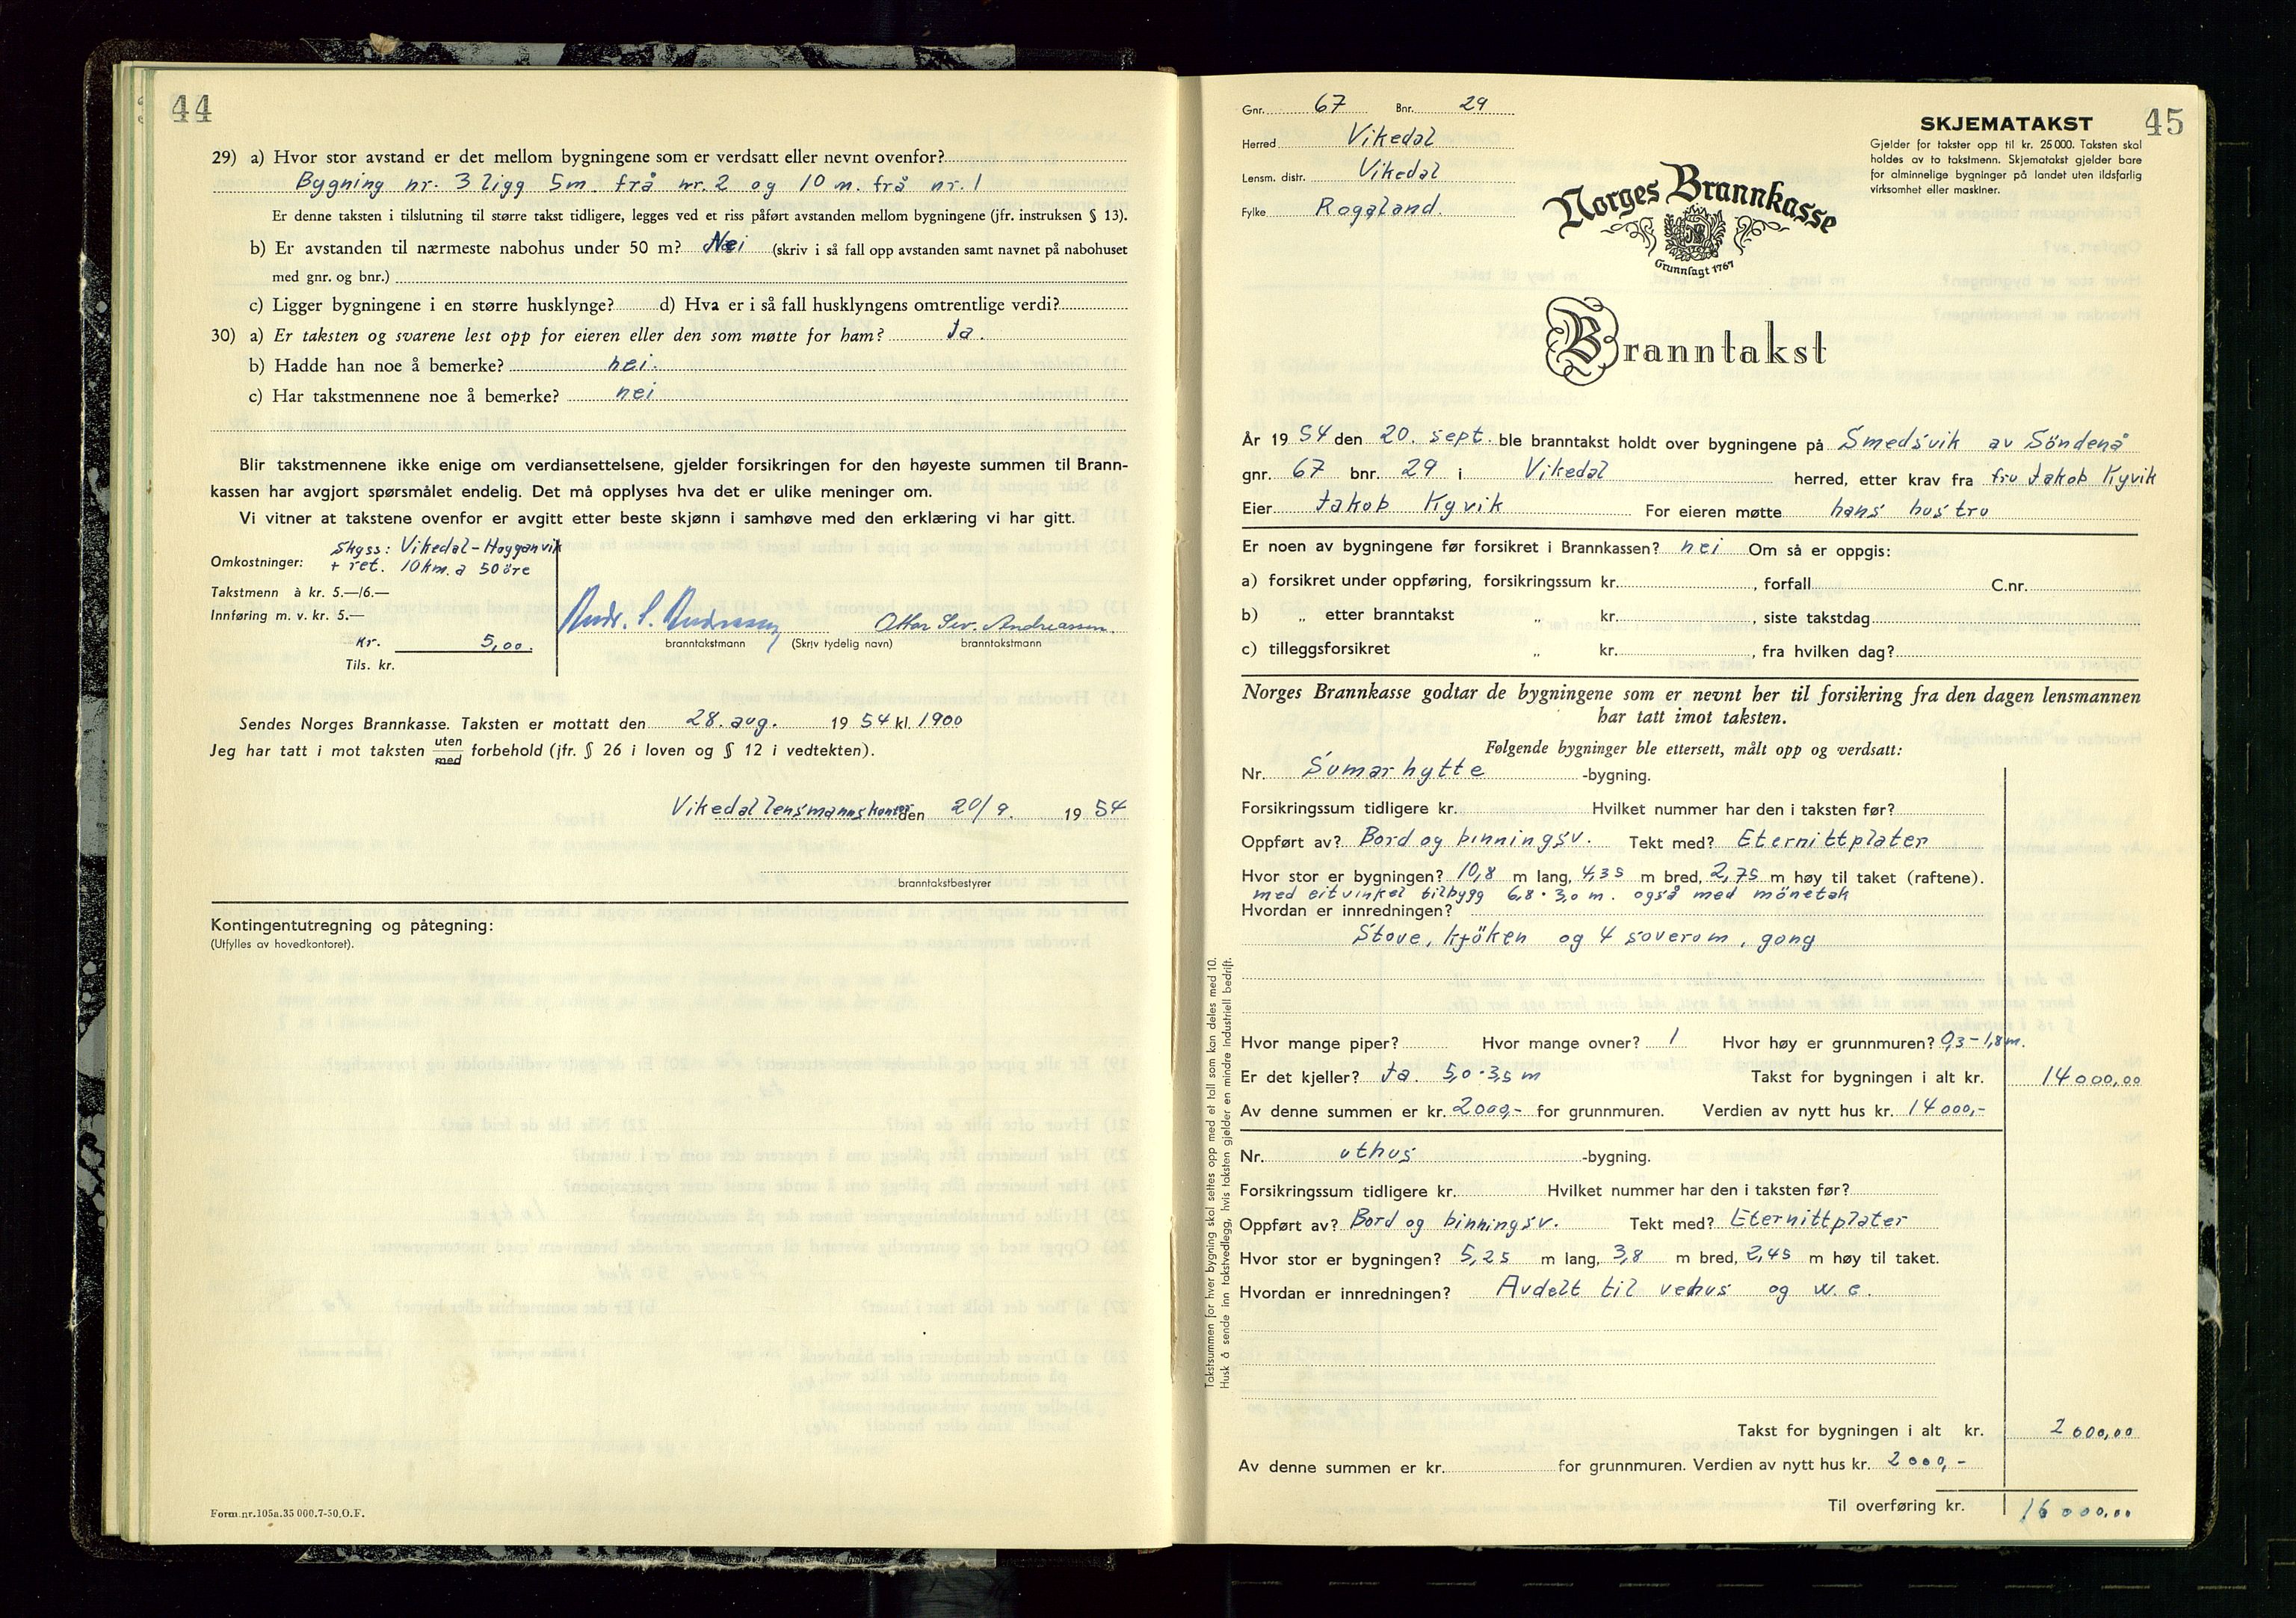 44
29) a) Hvor stor avstand er det mellom bygningene som er verdsatt eller nevnt ovenfor?
Bygning nr. 3 ligg 5m. frå nr. 2 og 10 m. frå nr. 1
Er denne taksten i tilslutning til større takst tidligere, legges ved et riss påført avstanden mellom bygningene (jfr. instruksen § 13).
b) Er avstanden til nærmeste nabohus under 50 m? Nei (skriv i så fall opp avstanden samt navnet på nabohuset
med gnr. og bnr.)
c) Ligger bygningene i en større husklynge? d) Hva er i så fall husklyngens omtrentlige verdi?
30) a) Er taksten og svarene lest opp for eieren eller den som møtte for ham? Ja.
b) Hadde han noe å bemerke? nei.
c) Har takstmennene noe å bemerke? nei
Blir takstmennene ikke enige om verdiansettelsene, gjelder forsikringen for den høyeste summen til Brann-
kassen har avgjort spørsmålet endelig. Det må opplyses hva det er ulike meninger om.
Vi vitner at takstene ovenfor er avgitt etter beste skjønn i samhøve med den erklæring vi har gitt.
Skyss: Vikedal-Hogganvik
Omkostninger: + ret. 10 km. a 50 öre
Takstmenn à kr. 5.—/6.—
Innføring m. v. kr. 5.—
Andr. S. Andreassen Ottar Sev. Andreassen.
Kr. 5,00.
branntakstmann (Skriv tydelig navn) branntakstmann
Tils. kr.
Sendes Norges Brannkasse. Taksten er mottatt den 28. aug. 1954 kl. 1900
Jeg har tatt i mot taksten uten med forbehold (jfr. § 26 i loven og § 12 i vedtekten).
Vikedal lensmannskontor den 20/9. 1954
branntakstbestyrer
Kontingentutregning og påtegning:
(Utfylles av hovedkontoret).
Form.nr.105a.35 000.7-50.O.F.
45
Gnr. 67 Bnr. 29
Herred Vikedal
Lensm. distr. Vikedal
Fylke Rogaland.
SKJEMATAKST
Gjelder for takster opp til kr. 25 000. Taksten skal
holdes av to takstmenn. Skjematakst gjelder bare
for alminnelige bygninger på landet uten ildsfarlig
virksomhet eller maskiner.
Norges Brannkasse
Grunnlagt 1767
Branntakst
År 1954 den 20. sept. ble branntakst holdt over bygningene på Smedsvik av Söndenå
gnr. 67 bnr. 29 i Vikedal herred, etter krav fra fru Jakob Kyvik
Eier Jakob Kyvik For eieren møtte hans hustru
Er noen av bygningene før forsikret i Brannkassen? nei Om så er oppgis:
a) forsikret under oppføring, forsikringssum kr. , forfall C.nr.
b) „ etter branntakst „ kr. , siste takstdag
c) tilleggsforsikret „ kr. , fra hvilken dag?
Norges Brannkasse godtar de bygningene som er nevnt her til forsikring fra den dagen lensmannen
har tatt imot taksten.
Følgende bygninger ble ettersett, målt opp og verdsatt:
Nr. Sumarhytte -bygning.
Forsikringssum tidligere kr. Hvilket nummer har den i taksten før?
Oppført av? Bord og binningsv. Tekt med? Eternittplater
Hvor stor er bygningen? 10,8 m lang, 4,35 m bred, 2,75 m høy til taket (raftene).
med eit vinkel tilbygg 6,8 · 3,0 m. også med mönetak
Hvordan er innredningen?
Stove, kjöken og 4 soverom, gong
Hvor mange piper? Hvor mange ovner? 1 Hvor høy er grunnmuren? 0,3-1,8m.
Er det kjeller? Ja. 5,0 · 3,5 m Takst for bygningen i alt kr. 14000,00
Av denne summen er kr. 2000,- for grunnmuren. Verdien av nytt hus kr. 14000,-
Nr. uthus -bygning.
Forsikringssum tidligere kr. Hvilket nummer har den i taksten før?
Oppført av? Bord og binningsv. Tekt med? Eternittplater
Hvor stor er bygningen? 5,25 m lang, 3,8 m bred, 2,45 m høy til taket.
Hvordan er innredningen? Avdelt til vehus og w.c.
Takst for bygningen i alt kr. 2000,00
Av denne summen er kr. for grunnmuren. Verdien av nytt hus kr. 2000,-
Til overføring kr. 16000,00
Takstsummen for hver bygning skal settes opp med et tall som kan deles med 10.
Husk å sende inn takstvedlegg, hvis taksten gjelder en mindre industriell bedrift.